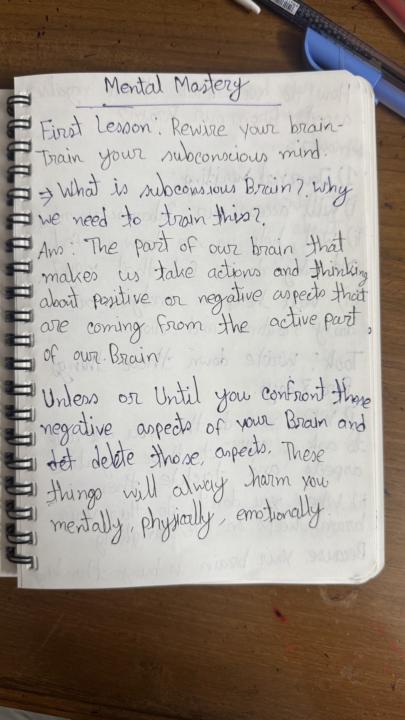 Mental Mastery
First Lesson: Rewire your brain-
Train your subconscious mind.
→ What is subconsious Brain? why
we need to train this?
Ans: The part of our brain that
makes us take actions and thinking
about positive or negative aspects that
are coming from the active part,
of our Brain
Unless or Until you confront those
negative aspects of your Brain and
delete those, aspects. These
things will alway harm you
mentally, physically, emotionally.